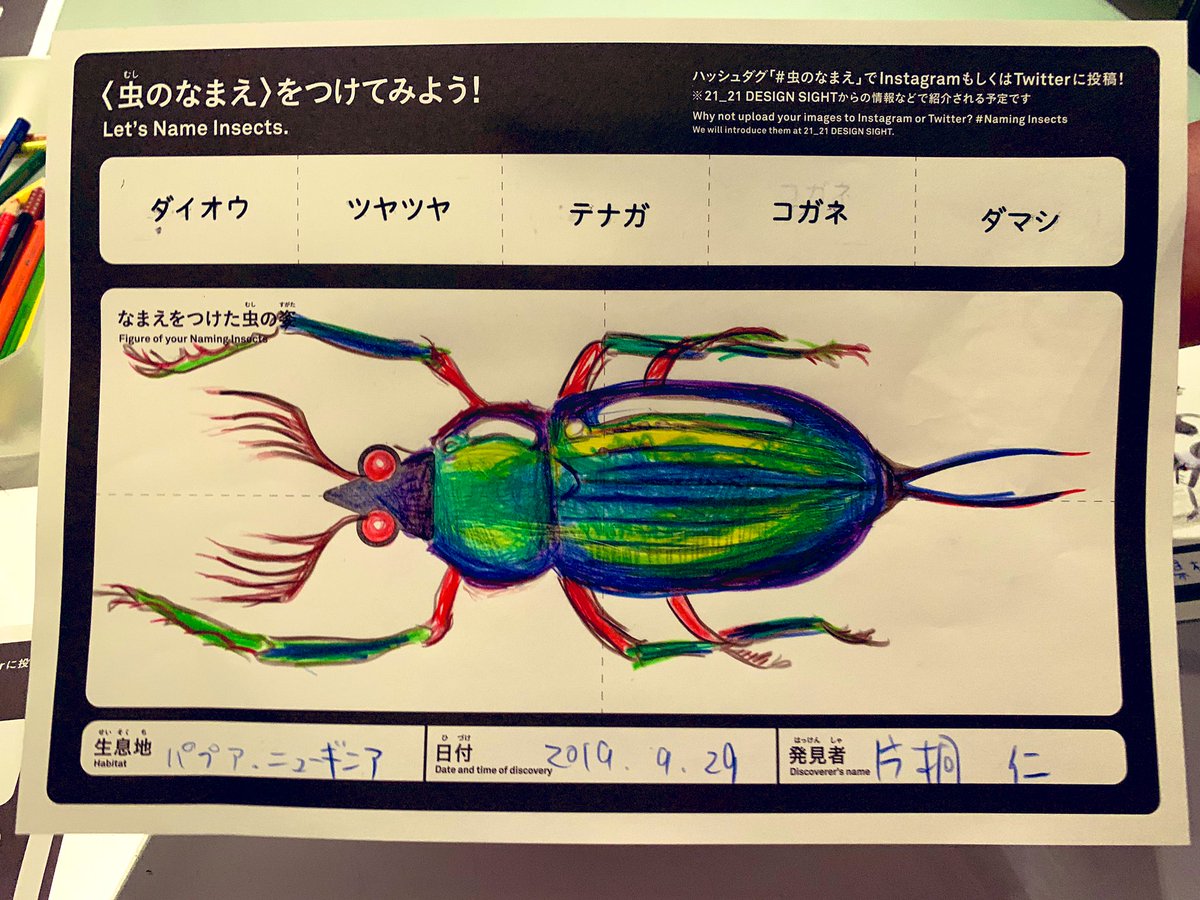 むし
〈虫のなまえ〉をつけてみよう!
Let's Name Insects.
ハッシュダグ「#虫のなまえ」でInstagramもしくはTwitterに投稿!
※21_21 DESIGN SIGHTからの情報などで紹介される予定です
Why not upload your images to Instagram or Twitter? #Naming Insects
We will introduce them at 21_21 DESIGN SIGHT.
ダイオウ ツヤツヤ テナガ コガネ ダマシ
コガネ
むし すがた
なまえをつけた虫の姿
Figure of your Naming Insects
せいそくち
生息地
Habitat
パプア.ニューギニア
ひづけ
日付
Date and time of discovery
2019.9.29
はっけんしゃ
発見者
Discoverer's name
片桐 仁